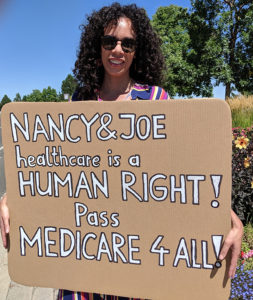 NANCY&JOE
healthcare is a
HUMAN RIGHT!
Pass
MEDICARE 4 ALL!